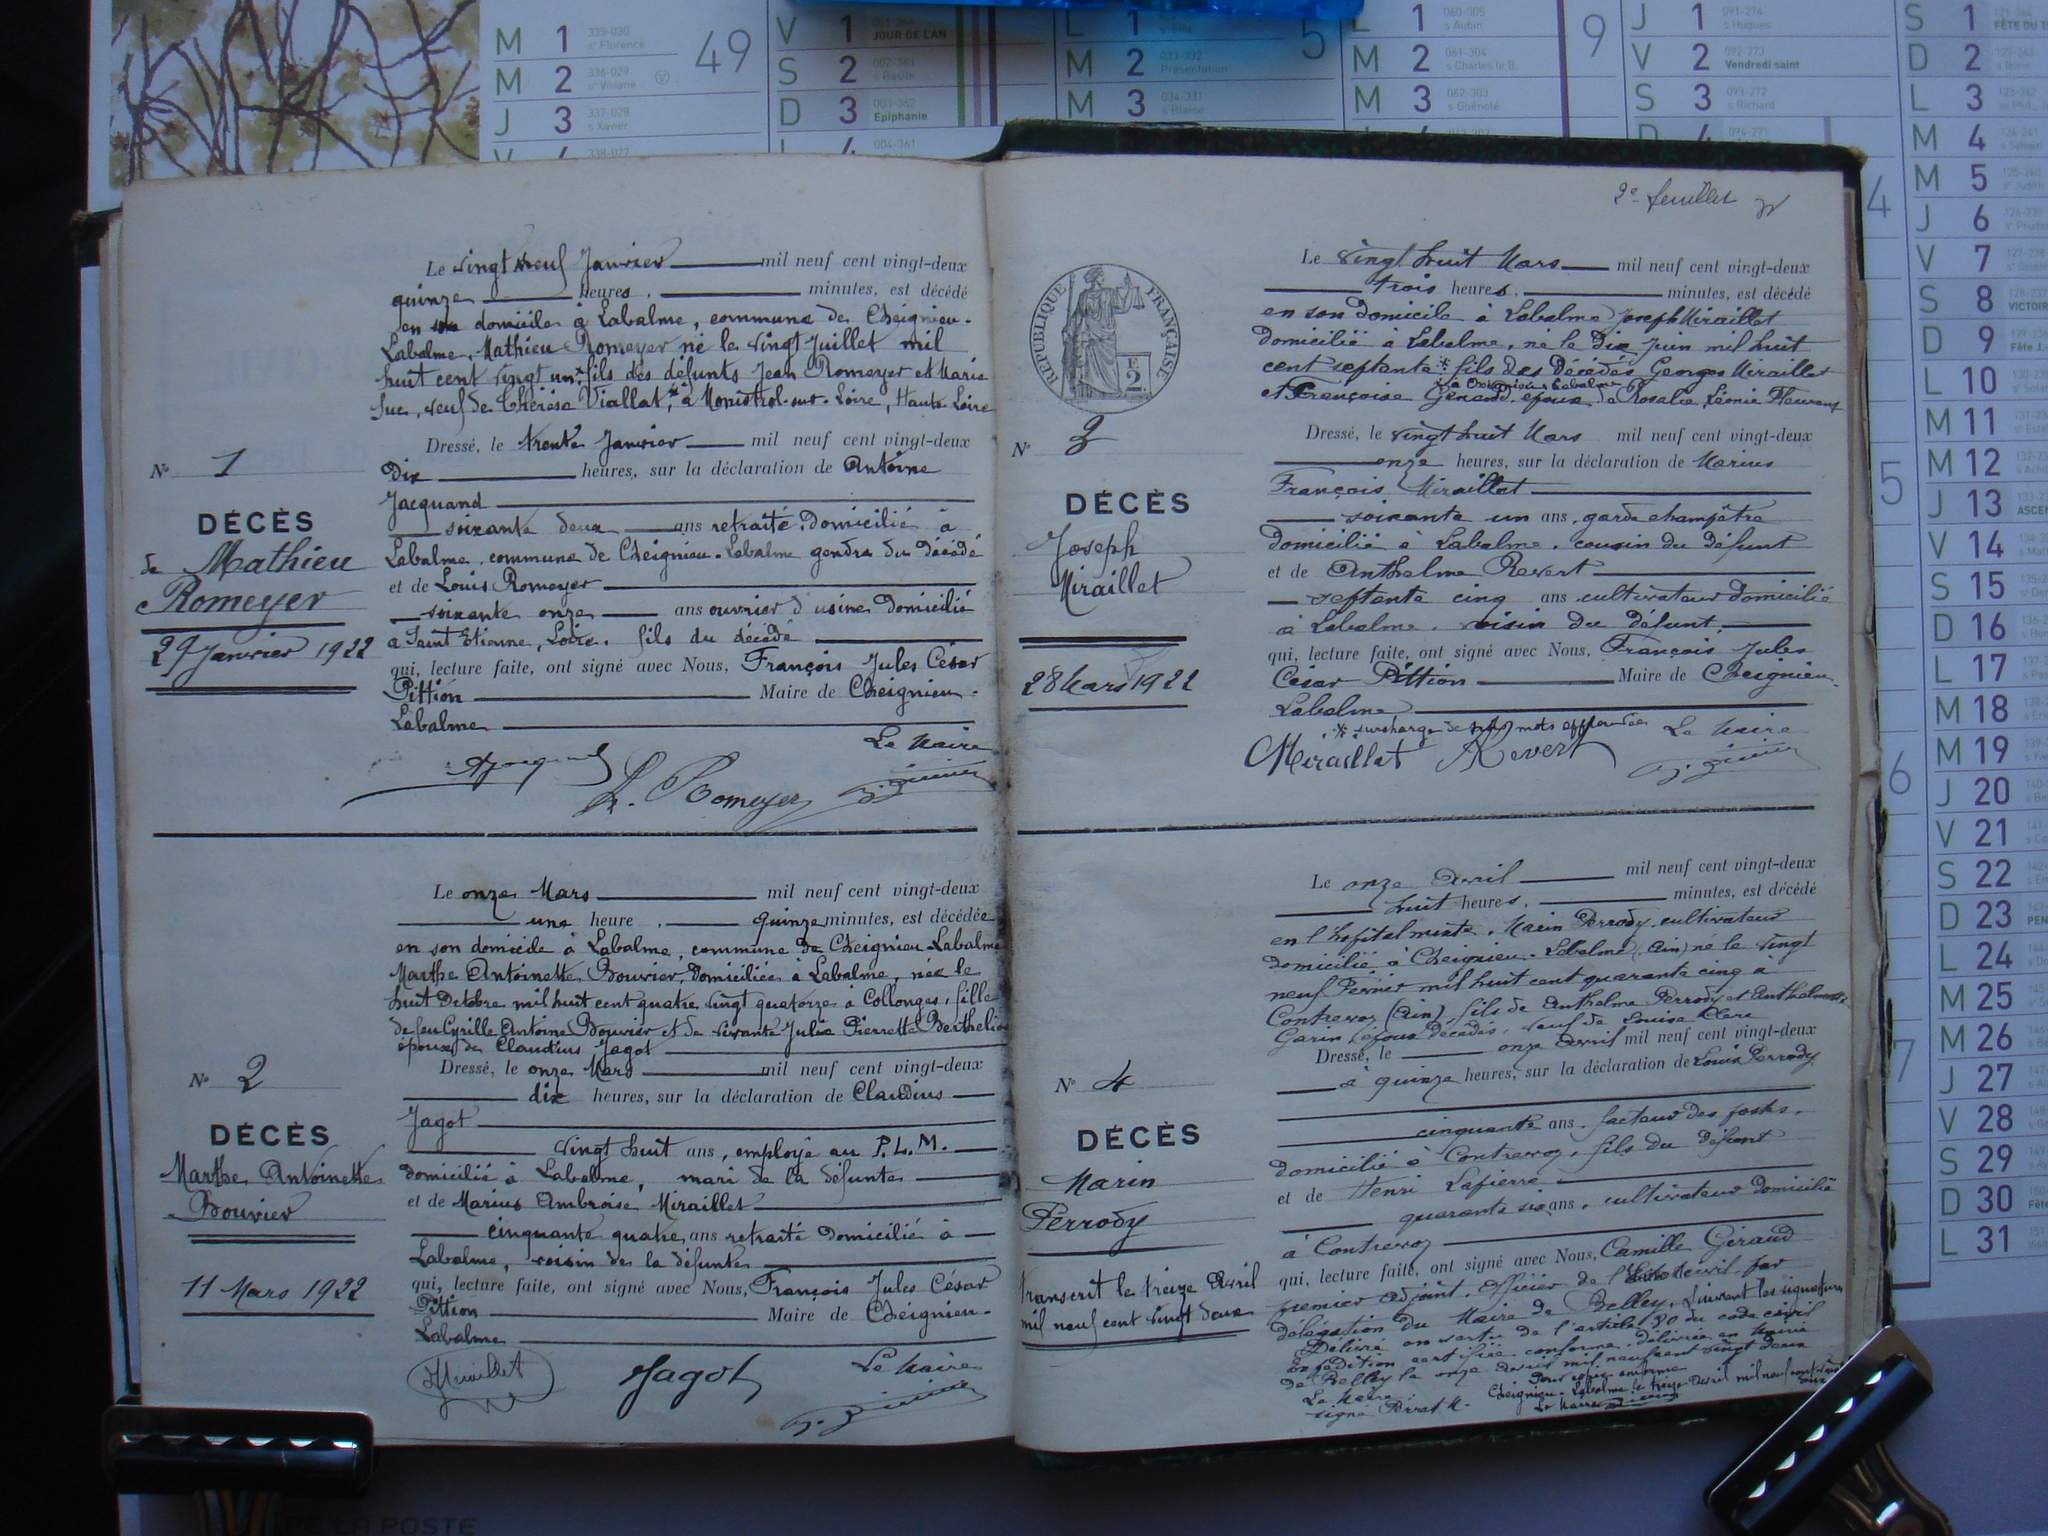 N° 1
DÉCÈS
de Mathieu
Romeyer
29 Janvier 1922
Le vingt neuf Janvier mil neuf cent vingt-deux
quinze heures, minutes, est décédé
en son domicile à Labalme, commune de Cheignieu-
Labalme, Mathieu Romeyer né le vingt Juillet mil
huit cent vingt un * fils des défunts Jean Romeyer et Marie
Suc, veuf de Thérèse Viallat, * à Monistrol-sur-Loire, Haute Loire
Dressé, le trente Janvier mil neuf cent vingt-deux
dix heures, sur la déclaration de Antoine
Jacquand
soixante deux ans retraité. domicilié à
Labalme, commune de Cheignieu-Labalme gendre du décédé
et de Louis Romeyer
soixante onze ans ouvrier d'usines domicilié
à Saint Etienne, Loire, fils du décédé
qui, lecture faite, ont signé avec Nous, François Jules César
Pittion Maire de Cheignieu-
Labalme
Le Maire
L. Romeyer
N° 2
DÉCÈS
Marthe Antoinette
Bouvier
11 Mars 1922
Le onze Mars mil neuf cent vingt-deux
une heure, quinze minutes, est décédée
en son domicile à Labalme, commune de Cheignieu-Labalme
Marthe Antoinette Bouvier, domiciliée à Labalme, née le
huit Octobre mil huit cent quatre vingt quatorze à Collonges, fille
de feu Cyrille Antoine Bouvier et de vivante Julie Pierrette Berthelier
épouse de Claudius Jagot
Dressé, le onze Mars mil neuf cent vingt-deux
dix heures, sur la déclaration de Claudius
Jagot
vingt huit ans, employé au P.L.M.
domicilié à Labalme, mari de la défunte
et de Marius Ambroise Miraillet
cinquante quatre ans retraité domicilié à
Labalme, voisin de la défunte
qui, lecture faite, ont signé avec Nous, François Jules César
Pittion Maire de Cheignieu-
Labalme
Jagot Le Maire
2e feuillet
RÉPUBLIQUE FRANÇAISE
2
N° 3
DÉCÈS
Joseph
Miraillet
28 Mars 1922
Le vingt huit Mars mil neuf cent vingt-deux
trois heures, minutes, est décédé
en son domicile à Labalme Joseph Miraillet
domicilié à Labalme, né le Dix Juin mil huit
cent septante * fils des Décédés Georges Miraillet
* à Cheignieu Labalme
et Françoise époux de Rosalie Léonie
Dressé, le vingt huit Mars mil neuf cent vingt-deux
onze heures, sur la déclaration de Marius
François Miraillet
soixante un ans, garde champêtre
domicilié à Labalme, cousin du défunt
et de Anthelme Revert
septante cinq ans cultivateur domicilié
à Labalme, voisin du Défunt
qui, lecture faite, ont signé avec Nous, François Jules
César Pittion Maire de Cheignieu-
Labalme
* surcharge de trois mots approuvée Le Maire
Miraillet Revert
N° 4
DÉCÈS
Marin
Perrody
Transcrit le treize Avril
mil neuf cent vingt deux
Le onze Avril mil neuf cent vingt-deux
huit heures, minutes, est décédé
en l'hôpital mixte, Marin Perrody, cultivateur
domicilié à Cheignieu-Labalme (Ain) né le vingt
neuf Février mil huit cent quarante cinq à
Contrevoz (Ain), fils de Anthelme Perrody et Anthelmette
Garin époux décédés, veuf de Louise Clerc
Dressé, le onze Avril mil neuf cent vingt-deux
à quinze heures, sur la déclaration de Louis Perrody
cinquante ans, facteur des postes,
domicilié à Contrevoz, fils du Défunt
et de Henri Lapierre
quarante six ans, cultivateur domicilié
à Contrevoz
qui, lecture faite, ont signé avec Nous, Camille Géraud
premier adjoint, officier de l'Etat civil par
délégation du Maire de Belley, suivent les signatures
Délivré en vertu de l'article 80 du code civil
Expédition certifiée conforme, délivrée en Mairie
de Belley le onze Avril mil neuf cent vingt deux
Pour copie conforme
Le Maire
Cheignieu-Labalme le treize Avril mil neuf cent vingt deux
signé Le Maire
M 1
M 2
J 3
49
V 1 JOUR DE L'AN
S 2
D 3 Epiphanie
5
M 2
M 3
L 1 s Aubin
M 2 s Charles le B.
M 3 s Guénolé
9
J 1 s Hugues
V 2 Vendredi saint
S 3 s Richard
S 1
D 2
L 3
M 4
M 5
J 6
V 7
S 8
D 9
L 10
M 11
M 12
J 13
V 14
S 15
D 16
L 17
M 18
M 19
J 20
V 21
S 22
D 23
L 24
M 25
M 26
J 27
V 28
S 29
D 30
L 31
4
5
6
7
LA POSTE